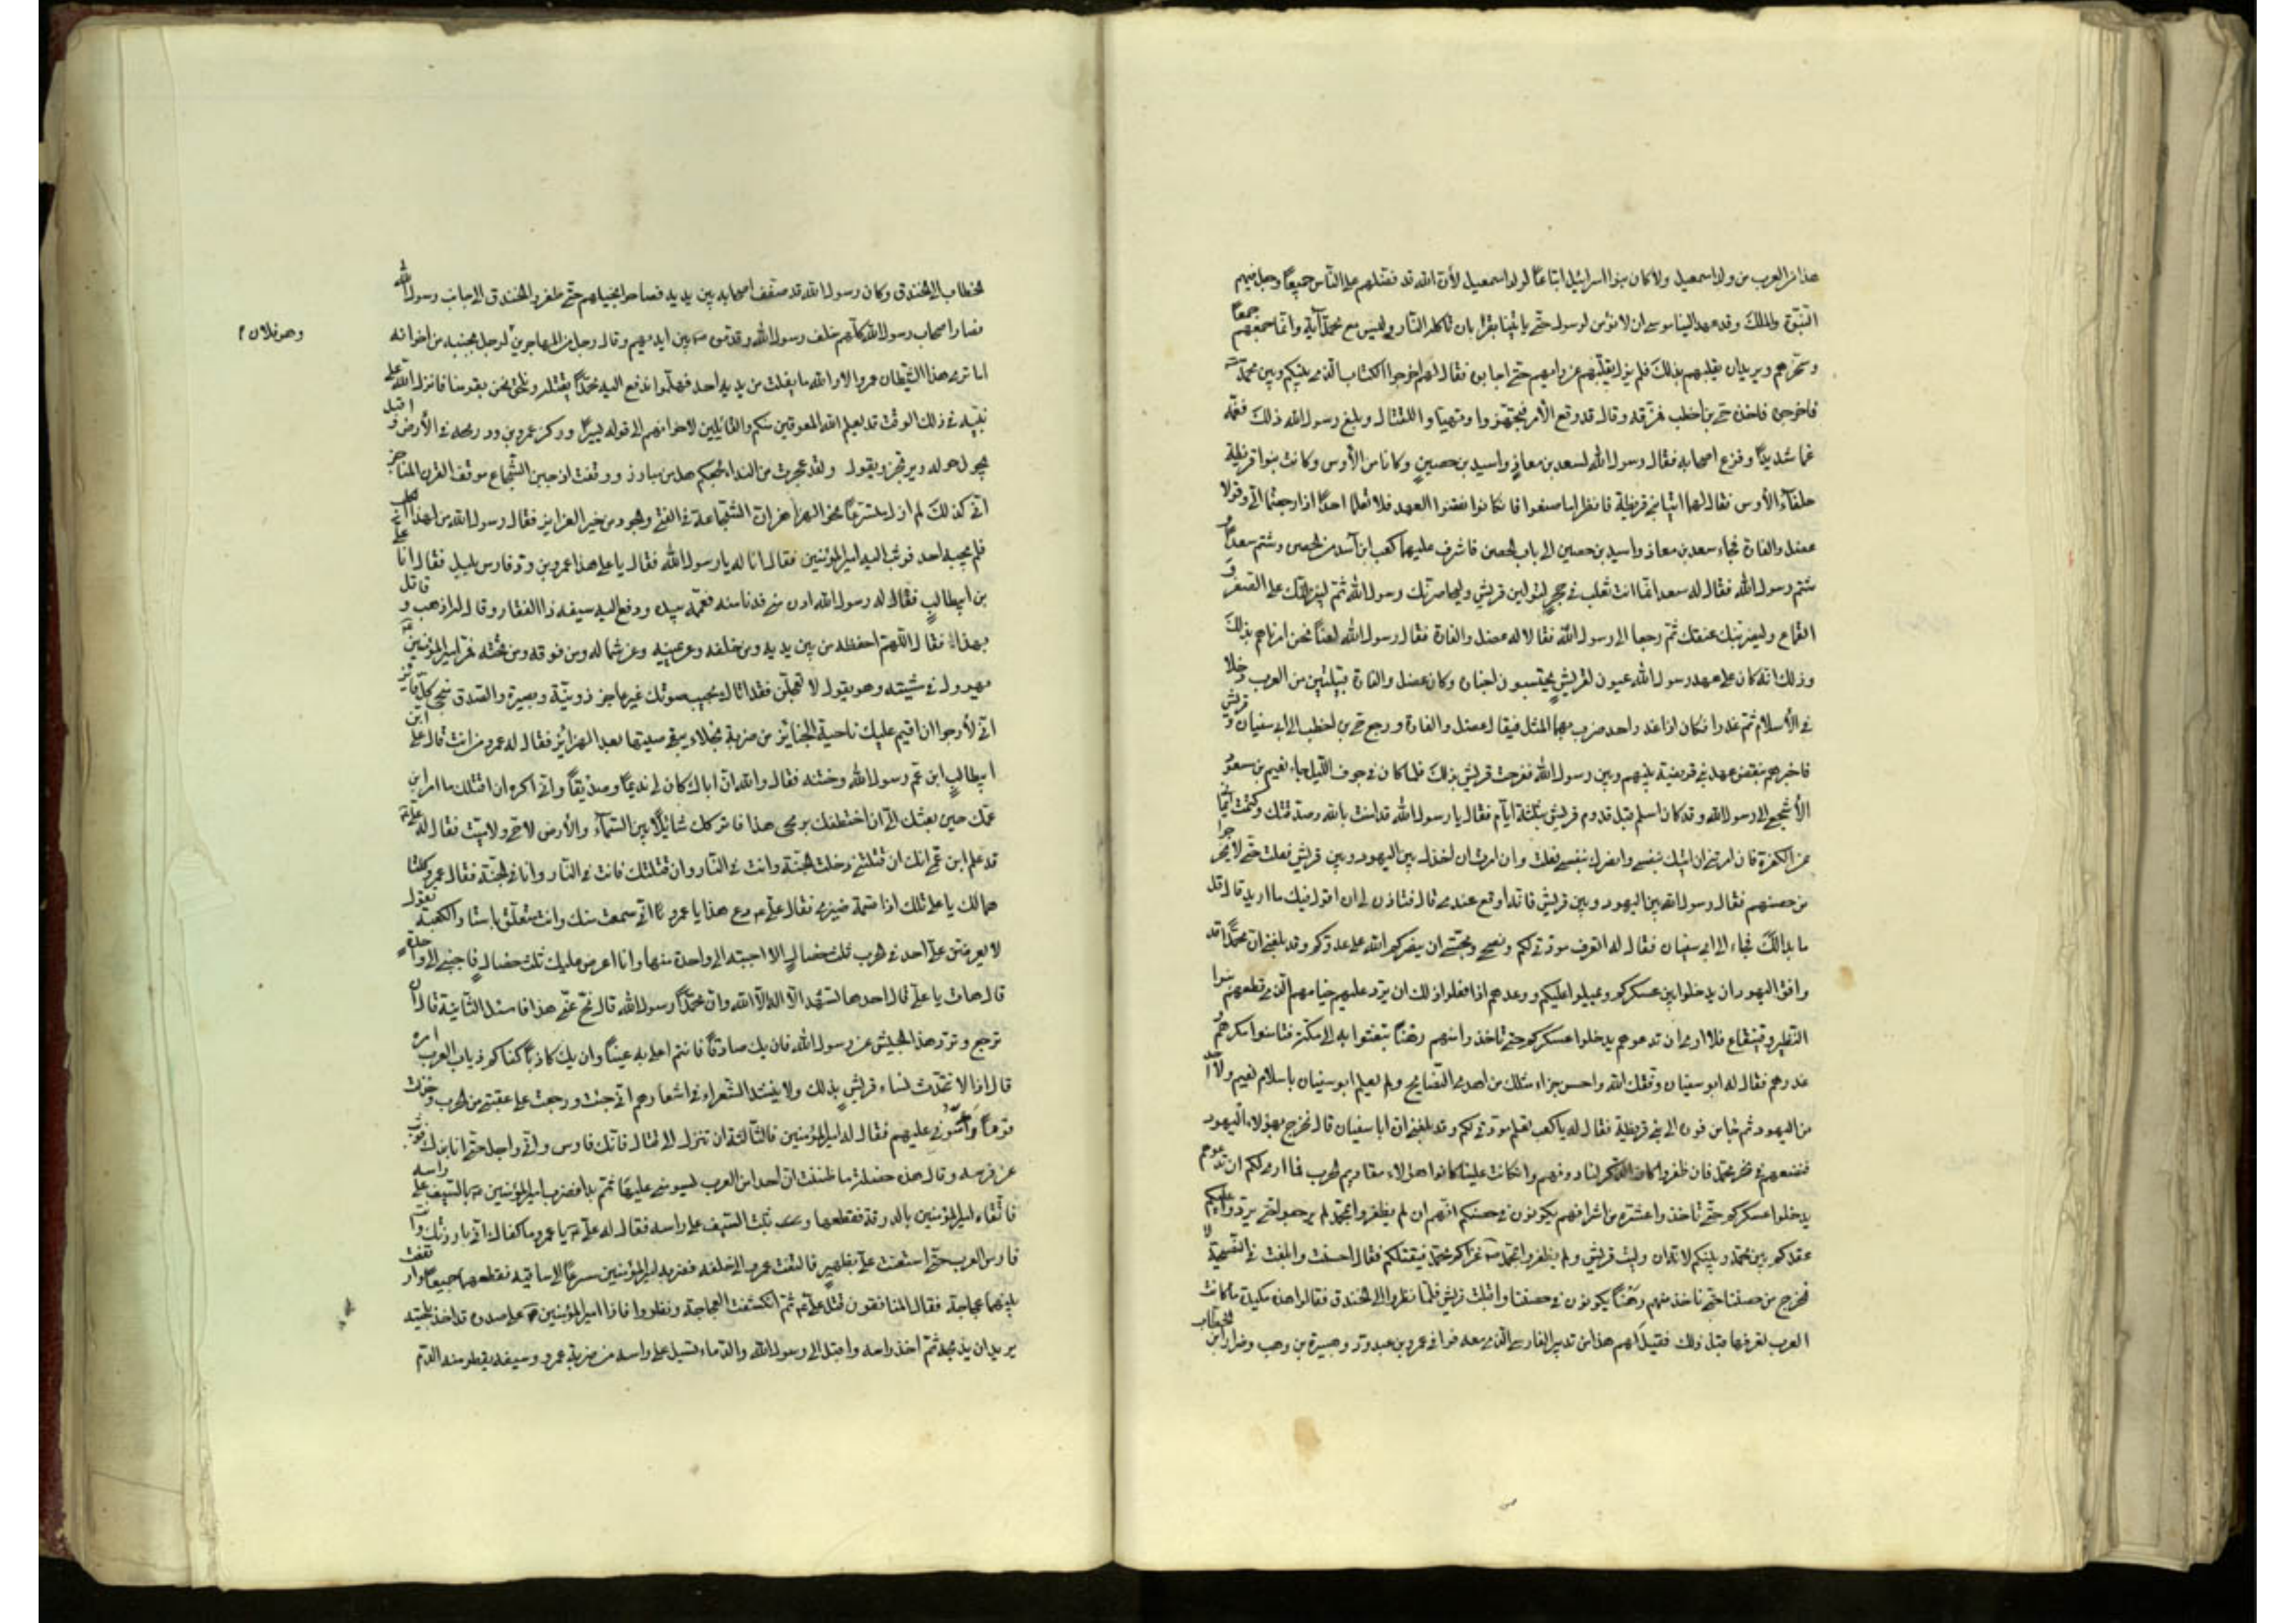 هذا من العرب من ولد اسمعيل ولا كان بنوا اسرائيل اتباعًا لولد اسمعيل لأن الله قد فضلهم على الناس جميعًا وجعل فيهم
النبوّة والملك وقد عهد الينا موسى ان لا نؤمن لرسول حتى يأتينا بقربان تأكله النار وليس مع محمد آية وانما جمعهم جمعًا
وسحرهم ويريد ان يغلبهم بذلك فلم يزل يقلبهم عن رأيهم حتى اجابوه فقال لهم اخرجوا الكتاب الذي بينكم وبين محمد
فاخرجوه فاخذه حي بن اخطب فمزقه وقال قد وقع الأمر فتجهزوا وتهيأوا للقتال وبلغ رسول الله ذلك فغمه
غما شديدًا وفزع اصحابه فقال رسول الله لسعد بن معاذ واسيد بن حصين وكانا من الأوس وكانت بنوا قريظة
حلفآء الأوس فقال لهما ائتيا بني قريظة فانظرا ما صنعوا فان كانوا نقضوا العهد فلا تعلما احدًا اذا رجعتما الى وقولا
عضل والقارة فجاء سعد بن معاذ واسيد بن حصين الى باب الحصن فاشرف عليهما كعب ابن أسد من الحصن وشتم سعدًا و
شتم رسول الله فقال له سعد انما انت ثعلب في جحر لتولين قريش وليحاصرنك رسول الله ثم لينزلنك على الصغر و
القماع وليضربن عنقك ثم رجعا الى رسول الله فقالا له عضل والقارة فقال رسول الله لعنًا نحن امرناهم بذلك
وذلك انه كان على عهد رسول الله عيون لقريش يتجسسون اخباره وكان عضل والقارة قبيلتين من العرب دخلا
في الأسلام ثم غدرا فكان اذا غدر واحد ضرب بهما المثل فيقال عضل والقارة ورجع حي بن اخطب الى ابي سفيان و قريش
فاخبرهم بنقض عهد بني قريضة بينهم وبين رسول الله ففرحت قريش بذلك فلما كان في جوف الليل جاء نعيم بن مسعود
الأشجعي الى رسول الله وقد كان اسلم قبل قدوم قريش بثلثة ايام فقال يا رسول الله قد امنت بالله وصدقتك وكتمت ايماني
عن الكفرة فان امرتني ان آتيك بنفسي وانصرك بنفسي فعلت وان امرت ان اخذل بين اليهود وبين قريش فعلت حتى لا يخرجوا
من حصنهم فقال رسول الله بين اليهود وبين قريش فانه اوقع عندي قال فتأذن لي ان اقول فيك ما اريد قال قل
ما بدا لك فجاء الى ابي سفيان فقال له اتعرف مودتي لكم ونصحي ومحبتي ان ينصركم الله على عدوكم وقد بلغني ان محمدًا قد
وافق اليهود ان يدخلوا بين عسكركم ويميلوا عليكم ووعدهم اذا فعلوا ذلك ان يرد عليهم جناحهم الذي قطعهم بنوا
النضير وقينقاع فلا ارى ان تدعوهم يدخلوا عسكركم حتى تأخذوا منهم رهنًا تبعثوا به الى مكة فتأمنوا مكرهم و
غدرهم فقال له ابو سفيان وفقك الله واحسن جزاءك مثلك من اهدى النصايح ولم يعلم ابو سفيان باسلام نعيم ولا احد
من اليهود ثم جاء من فوره الى بني قريظة فقال له يا كعب تعلم مودتي لكم وقد بلغني ان ابا سفيان قال نخرج بهؤلاء اليهود
فنضعهم في نحر محمد فان ظفروا كان الذكر لنا دونهم وان كانت علينا كانوا هؤلاء مقاديم الحرب فما ارى لكم ان تدعوهم
يدخلوا عسكركم حتى تأخذوا عشرة من اشرافهم يكونون في حصنكم انهم ان لم يظفروا بمحمد لم يرجعوا حتى يردوا عليكم
عقدكم بين محمد وبينكم لانه ان ولت قريش ولم يظفروا بمحمد غزاكم محمد فيقتلكم فقال احسنت وابلغت في النصيحة لا
نخرج من حصننا حتى نأخذ منهم رهنًا يكونون في حصننا واقبلت قريش فلما نظروا الى الخندق فقالوا هذه مكيدة ما كانت
العرب تعرفها قبل ذلك فقيل لهم هذا من تدبير الفارسي الذي معه فوافى عمرو بن عبد ود وهبيرة بن وهب وضرار ابن الخطاب
الخطاب الى الخندق وكان رسول الله قد صفف اصحابه بين يديه فصاحوا بخيلهم حتى طفروا الخندق الى جانب رسول الله
فصار اصحاب رسول الله كلهم خلف رسول الله وقدموه بين ايديهم وقال رجل من المهاجرين لرجل بجنبه من اخوانه
وهو فلان
اما ترى هذا الشيطان عمرو الا والله ما يفلت من يديه احد فهلموا ندفع اليه محمدًا يقتله ونلحق نحن بقومنا فانزل الله على
نبيه في ذلك الوقت قد يعلم الله المعوقين منكم والقائلين لاخوانهم الى قوله يسيرًا وركز عمرو بن ود رمحه في الأرض و اقبل
يجول حوله ويرتجز ويقول ولقد بححت من الندا بجمعكم هل من مبارز ووقفت اذ جبن الشجاع موقف القرن المناجز
اني كذلك لم ازل متسرعًا نحو الهزاهز ان الشجاعة في الفتى والجود من خير الغرايز فقال رسول الله من لهذا الكلب
فلم يجبه احد فوثب اليه امير المؤمنين فقال انا له يا رسول الله فقال يا علي هذا عمرو بن ود فارس يليل فقال انا علي
بن ابيطالب فقال له رسول الله ادن مني فدنا منه فعممه بيده ودفع اليه سيفه ذا الفقار وقال له اذهب و قاتل
بهذا فقال اللهم احفظه من بين يديه ومن خلفه وعن يمينه وعن شماله ومن فوقه ومن تحته فمر امير المؤمنين
يهرول في مشيته وهو يقول لا تعجلن فقد اتاك مجيب صوتك غير عاجز ذو نية وبصيرة والصدق منجي كل فايز
اني لأرجوا ان اقيم عليك ناحية الجنايز من ضربة نجلاء يبقى صيتها بعد الهزائز فقال له عمرو من انت قال علي ابن
ابيطالب ابن عم رسول الله وختنه فقال والله ان اباك كان لي نديمًا وصديقًا واني اكره ان اقتلك ما امن ابن
عمك حين بعثك الي ان اختطفك برمحي هذا فاتركك شائلًا بين السمآء والأرض لا حي ولا ميت فقال له علي
قد علم ابن عمي انك ان قتلتني دخلت الجنة وانت في النار وان قتلتك فانت في النار وانا في الجنة فقال عمرو كلتا
هما لك يا علي تلك اذا قسمة ضيزى فقال علي دع هذا يا عمرو اني سمعت منك وانت متعلق باستار الكعبة تقول
لا يعرضن علي احد في الحرب ثلث خصال الا اجبته الى واحدة منها وانا اعرض عليك ثلث خصال فاجبني الى واحدة
قال هات يا علي قال احدها تشهد الا اله الا الله وان محمدًا رسول الله قال نح عني هذا فاسئل الثانية قال ان
ترجع وترد هذا الجيش عن رسول الله فان يك صادقًا فانتم اعلى به عينًا وان يك كاذبًا كفتكم ذؤبان العرب امره
قال اذا لا تتحدث نساء قريش بذلك ولا ينشد الشعراء في اشعارهم اني جبنت ورجعت على عقبي من الحرب وخذلت
قومًا رأسوني عليهم فقال له امير المؤمنين فالثالثة ان تنزل الى القتال فانك فارس واني راجل حتى انابذك فوثب
عن فرسه وقال هذه خصلة ما ظننت ان احدا من العرب يسومني عليها ثم بدا فضرب امير المؤمنين بالسيف على راسه
فاتقاه امير المؤمنين بالدرقة فقطعها وثبت السيف على راسه فقال له علي يا عمرو ما كفاك اني بارزتك وانت
فارس العرب حتى استعنت علي بظهير فالتفت عمرو الى خلفه فضربه امير المؤمنين مسرعًا الى ساقيه فقطعهما جميعًا وارتفعت
بينهما عجاجة فقال المنافقون قتل علي ثم انكشفت العجاجة ونظروا فاذا امير المؤمنين على صدره قد اخذ بلحيته
يريد ان يذبحه ثم اخذ راسه واقبل الى رسول الله والدماء تسيل على راسه من ضربة عمرو وسيفه يقطر منه الدم